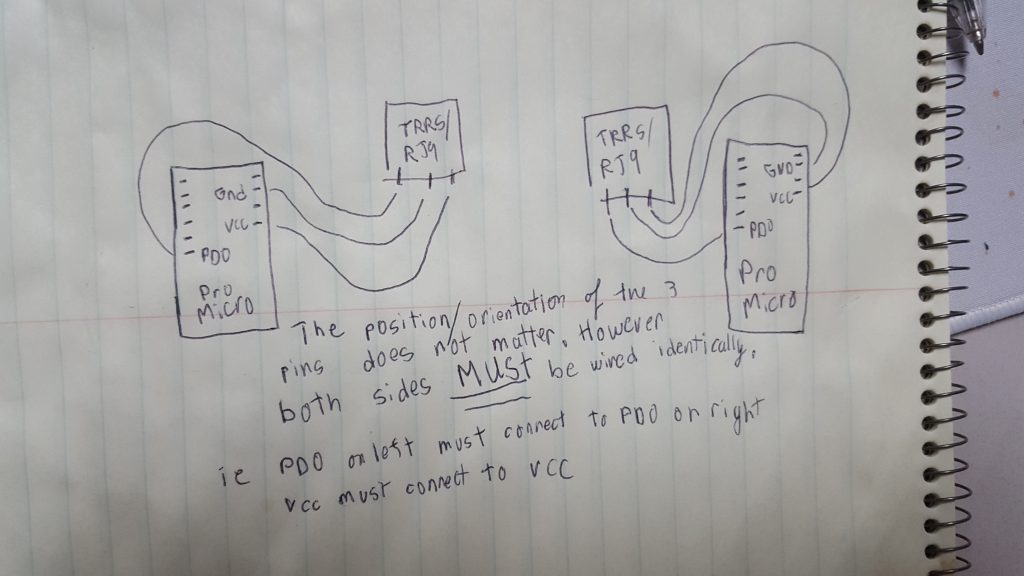 TRRS/
RJ9
Gnd
VCC
PDO
Pro
Micro
TRRS/
RJ9
GND
VCC
PDO
Pro
Micro
The position/orientation of the 3
pins does not matter. However
both sides MUST be wired identically.
ie PDO on left must connect to PDO on right
Vcc must connect to VCC